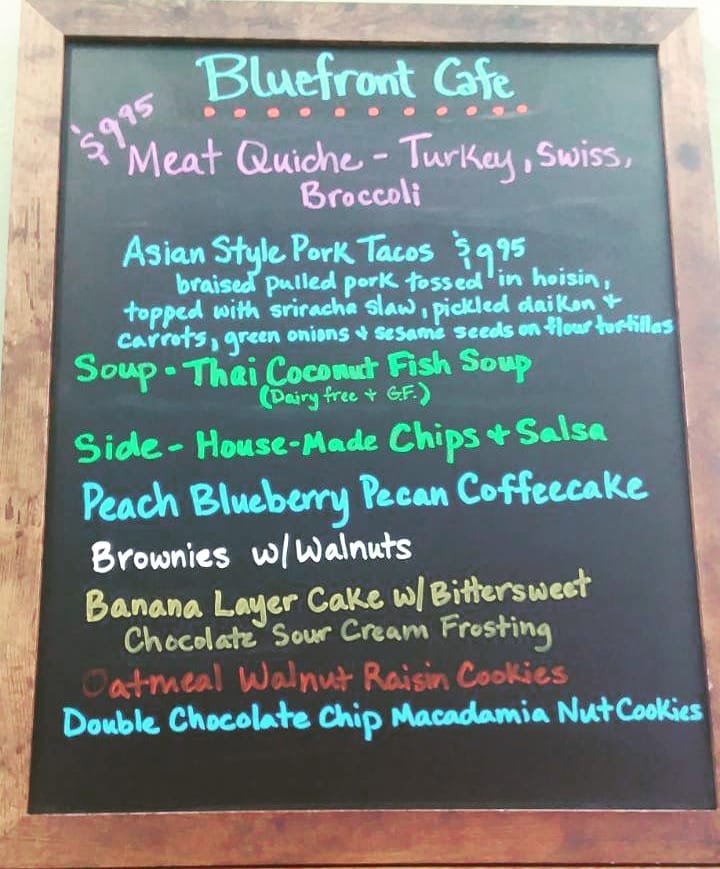 Bluefront Cafe
$9.95
Meat Quiche - Turkey, Swiss,
Broccoli
Asian Style Pork Tacos $9.95
braised pulled pork tossed in hoisin,
topped with sriracha slaw, pickled daikon +
carrots, green onions + sesame seeds on flour tortillas
Soup - Thai Coconut Fish Soup
(Dairy free + G.F.)
Side - House-Made Chips + Salsa
Peach Blueberry Pecan Coffeecake
Brownies w/Walnuts
Banana Layer Cake w/Bittersweet
Chocolate Sour Cream Frosting
Oatmeal Walnut Raisin Cookies
Double Chocolate Chip Macadamia Nut Cookies